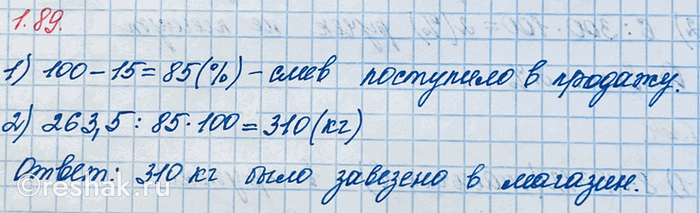 1.89.
1) 100 – 15 = 85 (%) – слив поступило в продажу.
2) 263,5 : 85 · 100 = 310 (кг)
Ответ: 310 кг было завезено в магазин.
©reshak.ru